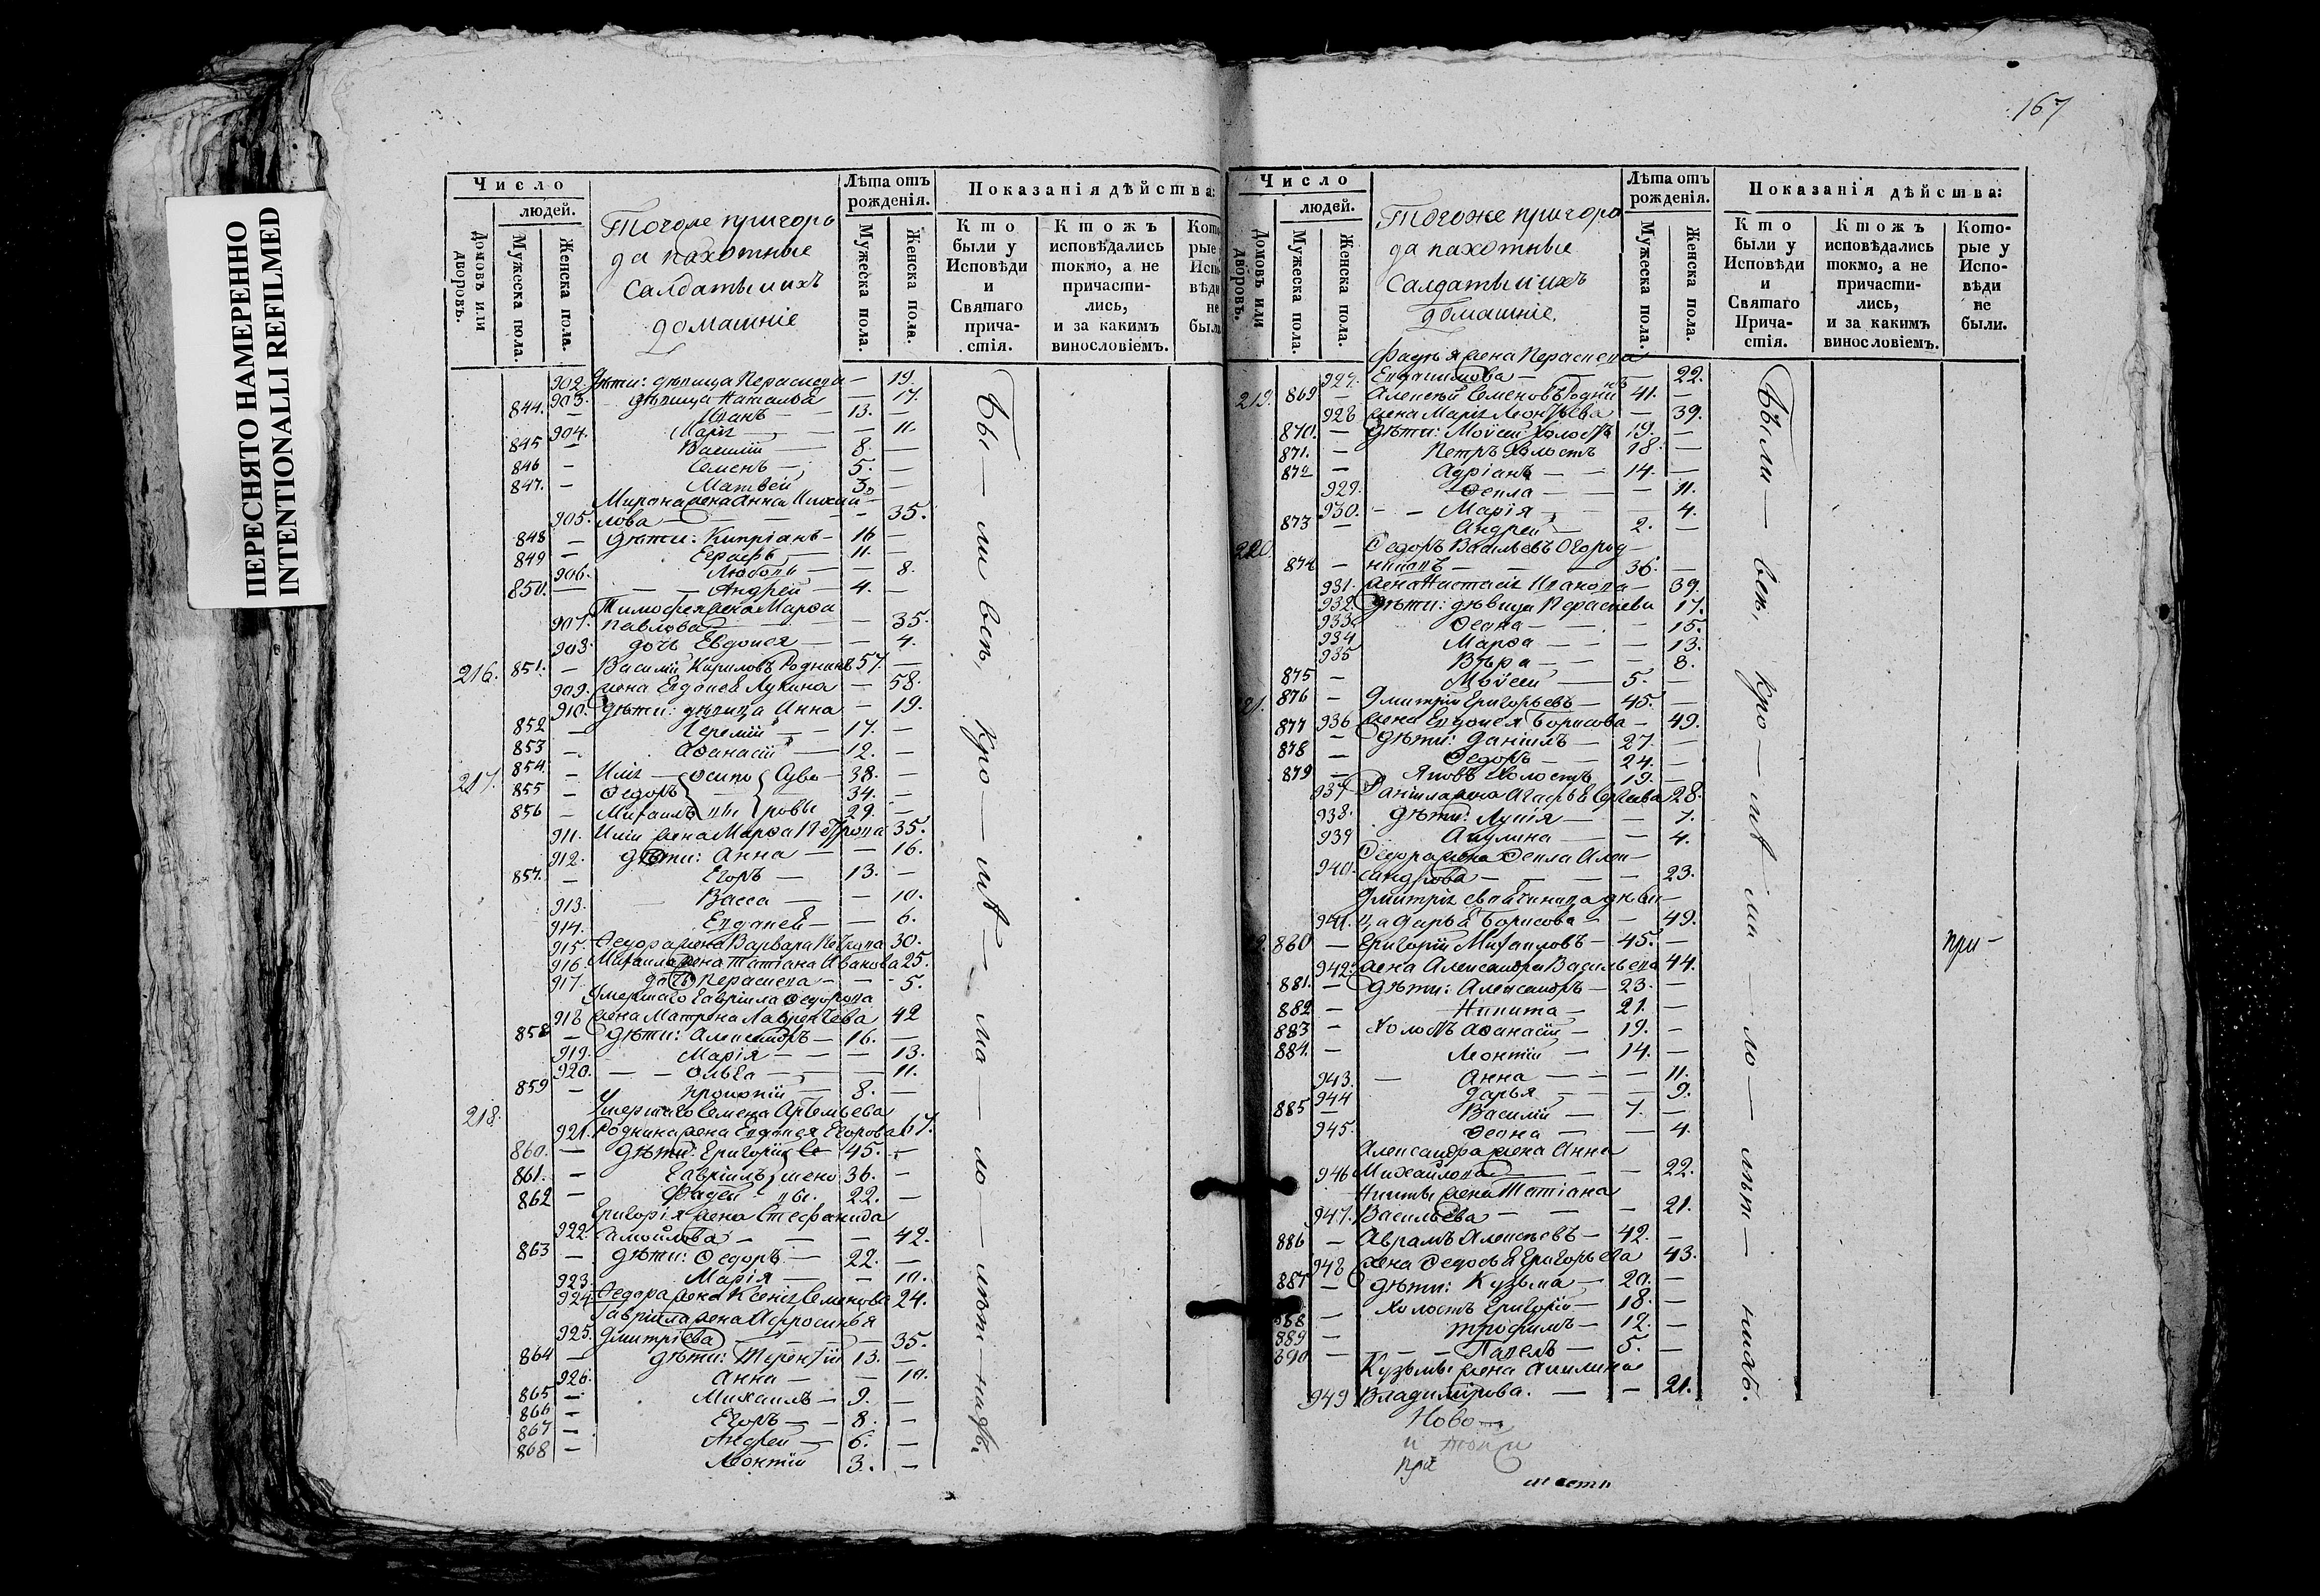 ПЕРЕСНЯТО НАМЕРЕННО
INTENTIONALLI REFILMED
Число
людей.
Домовъ или дворовъ.
Мужеска пола.
Женска пола.
Тогоже пригоро
да пахотные
Салдаты и ихъ
домашніе
Лѣта отъ рожденія.
Мужеска пола.
Женска пола.
Показанія дѣйства:
Кто были у Исповѣди и Святаго причастія.
Ктожъ исповѣдались токмо, а не причастились, и за какимъ винословіемъ.
902. Дѣти: дѣвица Параскева — 19.
903. дѣвица Наталья — 17.
844. — Иванъ — 13. —
904. Марія — 11.
845 — Василій — 8. —
846 — Семенъ — 5. —
847. — Матвей 3. —
Мирона жена Анна Михай
905. лова — 35.
848 — Дѣти: Кипріанъ — 16 —
849 — Евграфъ — 11. —
906. Любовь — 8.
850. — Андрей — 4. —
Тимофея жена Марѳа
907. Павлова — 35.
908. дочь Евдокея — 4.
216. 851. — Василій Кириловъ Роднинъ 57. —
909. жена Евдокея Лукина — 58.
910. Дѣти: дѣвица Анна — 19.
852 — Іеремій — 17. —
853 — Аѳанасій — 12. —
217. 854. — Илія Осипо Суво 38. —
855 — Ѳедоръ 34. —
856 — Михаилъ вы ровы 29. —
911. Иліи жена Марѳа Петрова 35.
912. дѣти: Анна — 16.
857. — Егоръ — 13. —
913. Васса — 10.
914. Евдокея — 6.
915. Ѳедора жена Варвара Петрова 30.
916. Михаила жена Татіана Иванова 25.
917. дочь Параскева — 5.
Умершаго Гавріила Ѳедорова
918 жена Матрена Лаврентева 42
858 — Дѣти: Александръ — 16. —
919. Марія — 13.
920. — Ольга — 11.
859 — Прокопій — 8. —
218. Умершаго Семена Артемьева
921. Роднина жена Евдокея Егорова 67.
860. — Дѣти: Григорій Се 45. —
861. — Гавріилъ мено 36. —
862 — Фадей вы. 22. —
Григорія жена Стефанида
922. Самойлова — 42.
863 — дѣти: Ѳедоръ — 22. —
923. Марія — 10.
924. Ѳедора жена Ксенія Семенова 24.
Гавріила жена Афросинья
925. Дмитріева — 35.
864 — дѣти: Терентій 13. —
926. Анна — 10.
865 — Михаилъ — 9. —
866 — Егоръ — 8. —
867 — Андрей — 6. —
868 — Леонтій 3. —
Бы — ли всѣ, кро — мѣ — ма — ло — лѣт — нихъ.
167
Число
людей.
Домовъ или дворовъ.
Мужеска пола.
Женска пола.
Тогоже пригоро
да пахотные
Салдаты и ихъ
домашніе.
Лѣта отъ рожденія.
Мужеска пола.
Женска пола.
Показанія дѣйства:
Кто были у Исповѣди и Святаго Причастія.
Ктожъ исповѣдались токмо, а не причастились, и за какимъ винословіемъ.
Которые у Исповѣди не были.
Фадѣя жена Параскева
927. — 22.
219. 869 — Алексѣй Семеновъ Роднинъ 41. —
928 жена Марія Леонтьева — 39.
870. — Дѣти: Моѵсей холостъ 19. —
871. — Петръ Холостъ 18. —
872 — Адріанъ — 14. —
929. Ѳекла — 11.
930. — Марія — 4.
873 — Андрей — 2. —
220. Ѳедоръ Васильевъ Огород
874 — никовъ — 36. —
931. жена Настасія Иванова — 39.
932. Дѣти: дѣвица Параскева 17.
933. — 15.
934 Марѳа — 13.
935 Вѣра — 8.
875 — Моѵсей — 5. —
876 — Дмитрій Григорьевъ — 45. —
936 жена Евдокея Борисова — 49.
877 — дѣти: Даніилъ — 27. —
878 — Ѳедоръ — 24. —
879 — Яковъ Холостъ 19. —
937 Даніила жена Агафья Сергеева 28.
938. дѣти: Лукія — 7.
939 Акулина — 4.
Ѳедора жена Ѳекла Алек
940. сандрова — 23.
941. ца Дарья Борисова — 49.
880 — Григорій Михаиловъ — 45. —
при —
942. жена Александра Васильева 44.
881. — дѣти: Александръ — 23. —
882 — Никита — 21. —
883 — Холостъ Аѳанасій — 19. —
884. — Леонтій — 14. —
943. — Анна — 11.
944 Дарья — 9.
885 — Василій — 7. —
945. — 4.
Александра жена Анна
946 Михайлова — 22.
Никиты жена Татіана
947. Васильева — 21.
886 — Аврамъ Алексѣевъ — 42. —
948 жена Ѳедосья Григорьева 43.
887 — дѣти: Кузьма — 20. —
888 — Холостъ Григорій — 18. —
889 — Трофимъ — 12. —
890 — Павелъ — 5. —
Кузьмы жена Акилина
949 Владимірова. — 21.
Бы ли — всѣ, кро — мѣ ма — ло — лѣт — нихъ.
Ново
и
при